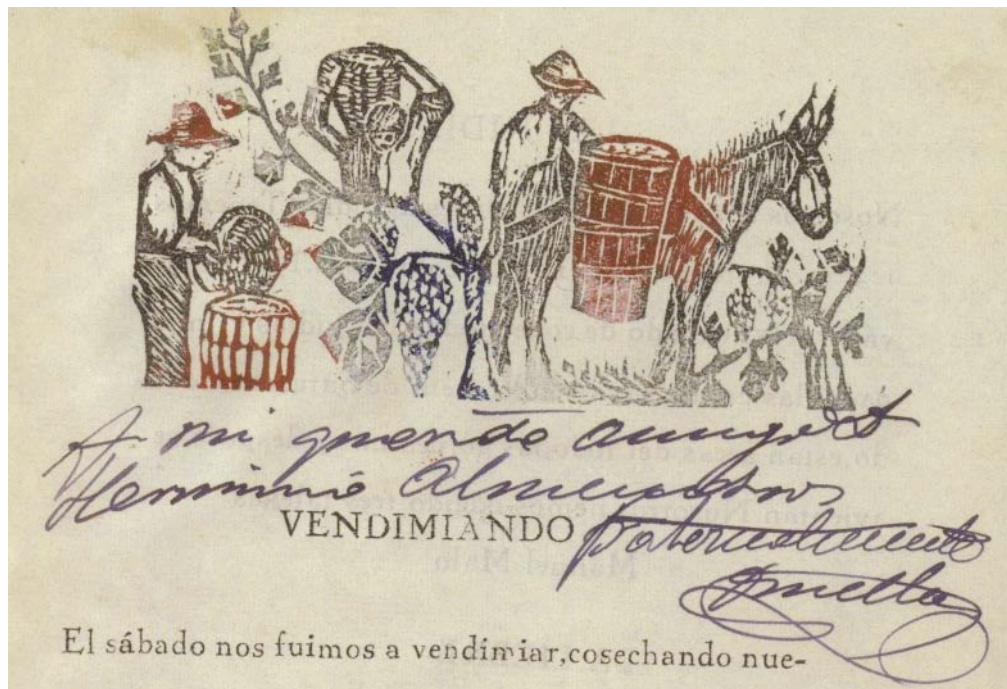 A mi querido amigo D.
Herminio Almendros
VENDIMIANDO
fraternalmente
El sábado nos fuimos a vendimiar,cosechando nue-